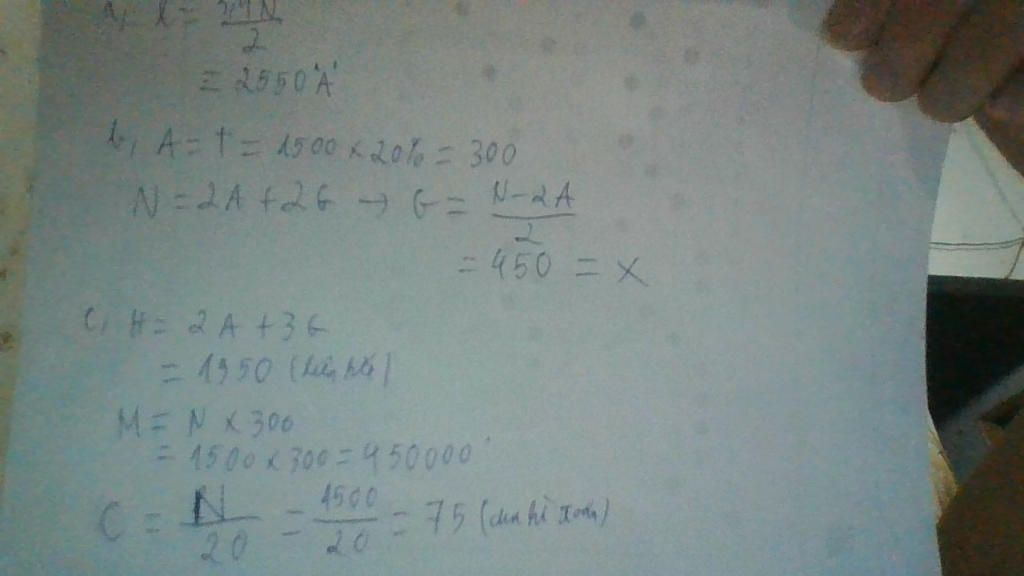 a, l = 3,4N / 2
= 2550 A
b, A = T = 1500 x 20% = 300
N = 2A + 2G → G = N - 2A / 2
= 450 = X
c, H = 2A + 3G
= 1950
M = N x 300
= 1500 x 300 = 450000
C = N / 20 = 1500 / 20 = 75 (chu kì xoắn)